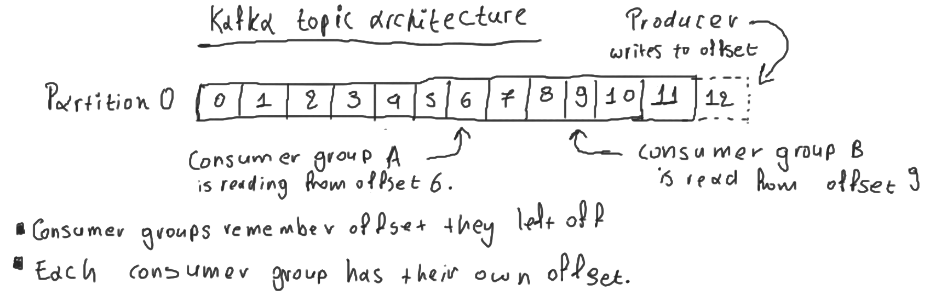 Kafka topic architecture
Producer
writes to offset
Partition 0 0 1 2 3 4 5 6 7 8 9 10 11 12
Consumer group A
is reading from offset 6.
Consumer group B
is read from offset 9
Consumer groups remember offset they left off
Each consumer group has their own offset.